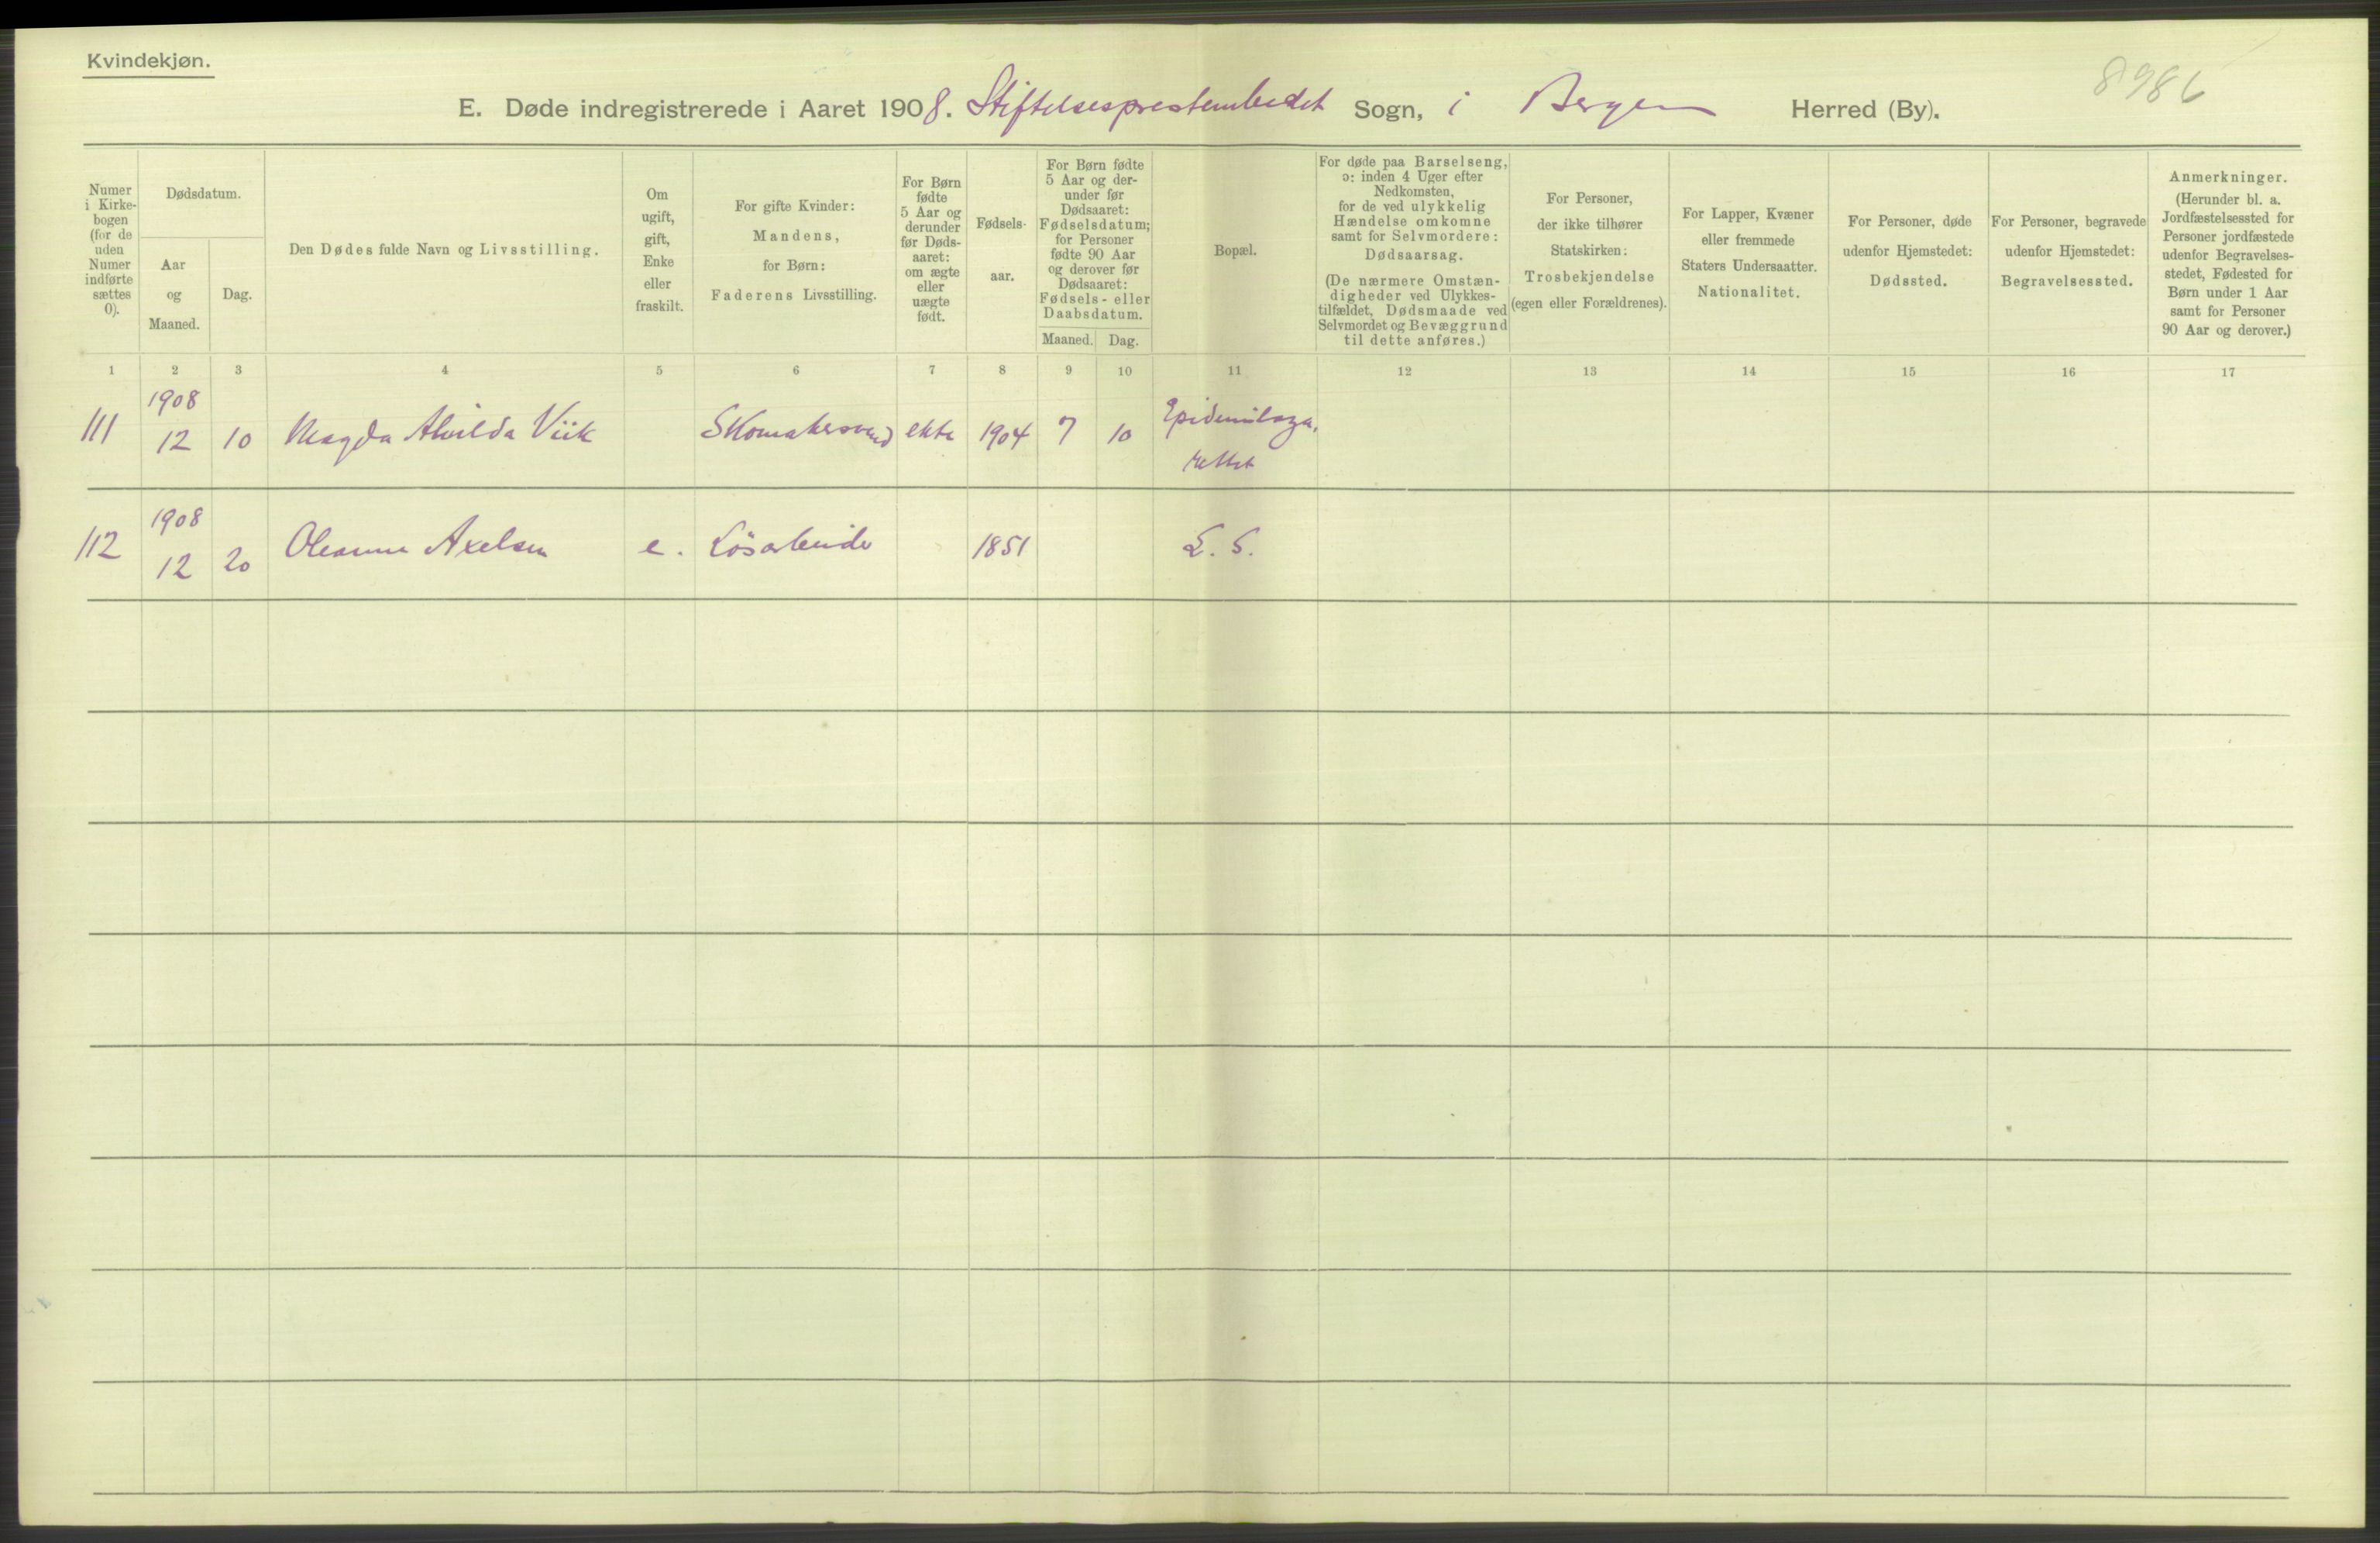 Kvindekjøn.
8986
E. Døde indregistrerede i Aaret 1908. Stiftelsesprestembedet Sogn, i Bergen Herred (By).
Numer
i Kirke-
bogen
(for de
uden
Numer
indførte
sættes
0).
Dødsdatum.
Aar
og
Maaned.
Dag.
Den Dødes fulde Navn og Livsstilling.
Om
ugift,
gift,
Enke
eller
fraskilt.
For gifte Kvinder:
Mandens,
for Børn:
Faderens Livsstilling.
For Børn
fødte
5 Aar og
derunder
før Døds-
aaret:
om ægte
eller
uægte
født.
Fødsels-
aar.
For Børn fødte
5 Aar og der-
under før
Dødsaaret:
Fødselsdatum;
for Personer
fødte 90 Aar
og derover før
Dødsaaret:
Fødsels- eller
Daabsdatum.
Maaned. Dag.
Bopæl.
For døde paa Barselseng,
ɔ: inden 4 Uger efter
Nedkomsten,
for de ved ulykkelig
Hændelse omkomne
samt for Selvmordere:
Dødsaarsag.
(De nærmere Omstæn-
digheder ved Ulykkes-
tilfældet, Dødsmaade ved
Selvmordet og Bevæggrund
til dette anføres.)
For Personer,
der ikke tilhører
Statskirken:
Trosbekjendelse
(egen eller Forældrenes).
For Lapper, Kvæner
eller fremmede
Staters Undersaatter.
Nationalitet.
For Personer, døde
udenfor Hjemstedet:
Dødssted.
For Personer, begravede
udenfor Hjemstedet:
Begravelsessted.
Anmerkninger.
(Herunder bl. a.
Jordfæstelsessted for
Personer jordfæstede
udenfor Begravelses-
stedet, Fødested for
Børn under 1 Aar
samt for Personer
90 Aar og derover.)
1 2 3 4 5 6 7 8 9 10 11 12 13 14 15 16 17
1908
111 12 10 Magda Alvilda Viik Skomakersvend ekte 1904 7 10 Epidemilaza,
rettet
1908
112 12 20 Oleanna Axelsen e. Løsarbeider 1851 L. S.